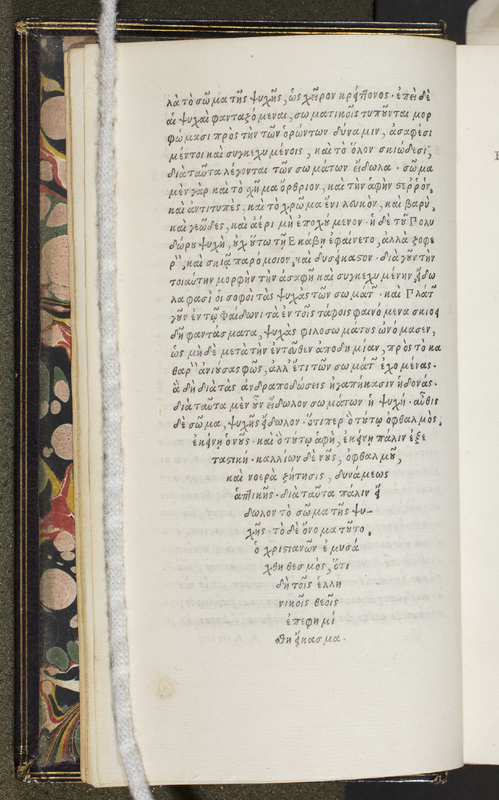 λὰ τὸ σῶμα τῆς ψυχῆς, ὡς χεῖρον κρείττονος· ἐπεὶ δὲ
αἱ ψυχαὶ φανταζόμεναι, σωματικοῖς τυποῦνται μορ
φώμασι πρὸς τὴν τῶν ὁρώντων δύναμιν, ἀσαφέσι
μέντοι καὶ συγκεχυμένοις, καὶ τὸ ὅλον σκιώδεσι,
διὰ ταῦτα λέγονται τῶν σωμάτων εἴδωλα· σῶμα
μὲν γὰρ καὶ τὸ σχῆμα ὄρθριον, καὶ τὴν ἁφὴν στερρόν,
καὶ ἀντιτυπὲς, καὶ τὸ χρῶμα ἔνι λουκὸν, καὶ βαρὺ,
καὶ γεῶδες, καὶ ἀέρι μὴ ἐποχούμενον· ἡ δὲ τοῦ Πολυ
δώρου ψυχὴ, οὐχ οὕτω τῇ Ἑκάβῃ ἐφαίνετο, ἀλλὰ ζοφε
ρὸν, καὶ σκιᾷ παρόμοιον, καὶ δυσείκαστον· διὰ γοῦν τὴν
τοιαύτην μορφὴν τὴν ἀσαφῆ καὶ συγκεχυμένην, εἴδω
λα φασὶ οἱ σοφοὶ τὰς ψυχὰς τῶν σωμάτων· καὶ Πλάτων
γοῦν ἐν τῷ Φαίδωνι τὰ ἐν τοῖς τάφοις φαινόμενα σκιοει
δῆ φαντάσματα, ψυχὰς φιλοσωμάτους ὠνόμασεν,
ὡς μηδὲ μετὰ τὴν ἐνταῦθεν ἀποδημίαν, πρὸς τὸ κα
θαρὸν ἀνιούσας φῶς, ἀλλ' ἔτι τῶν σωμάτων ἐχομένας·
ἃ δὴ διὰ τὰς ἀνδραποδώσεις ἠγαπήκασιν ἡδονάς·
διὰ ταῦτα μὲν οὖν εἴδωλον σωμάτων ἡ ψυχή· αὖθις
δὲ σῶμα, ψυχῆς εἴδωλον· ὅτιπερ ὁ τούτου ὀφθαλμὸς,
ἐκείνη ὁ νοῦς· καὶ ὁ τούτου ἁφὴ, ἐκείνη πάλιν ἐξε
ταστική· καλλίων δὲ νοῦς, ὀφθαλμοῦ,
καὶ νοερὰ ζήτησις, δυνάμεως
ἁπτικῆς· διὰ ταῦτα πάλιν εἴ
δωλον τὸ σῶμα τῆς ψυ-
χῆς· τὸ δὲ ὄνομα τοῦτο,
ὁ χριστιανῶν ἐμυσά
χθη θεσμὸς, ὅτι
δὴ τοῖς ἑλλη
νικοῖς θεοῖς
ἐπεφημί
σθη εἴκασμα.